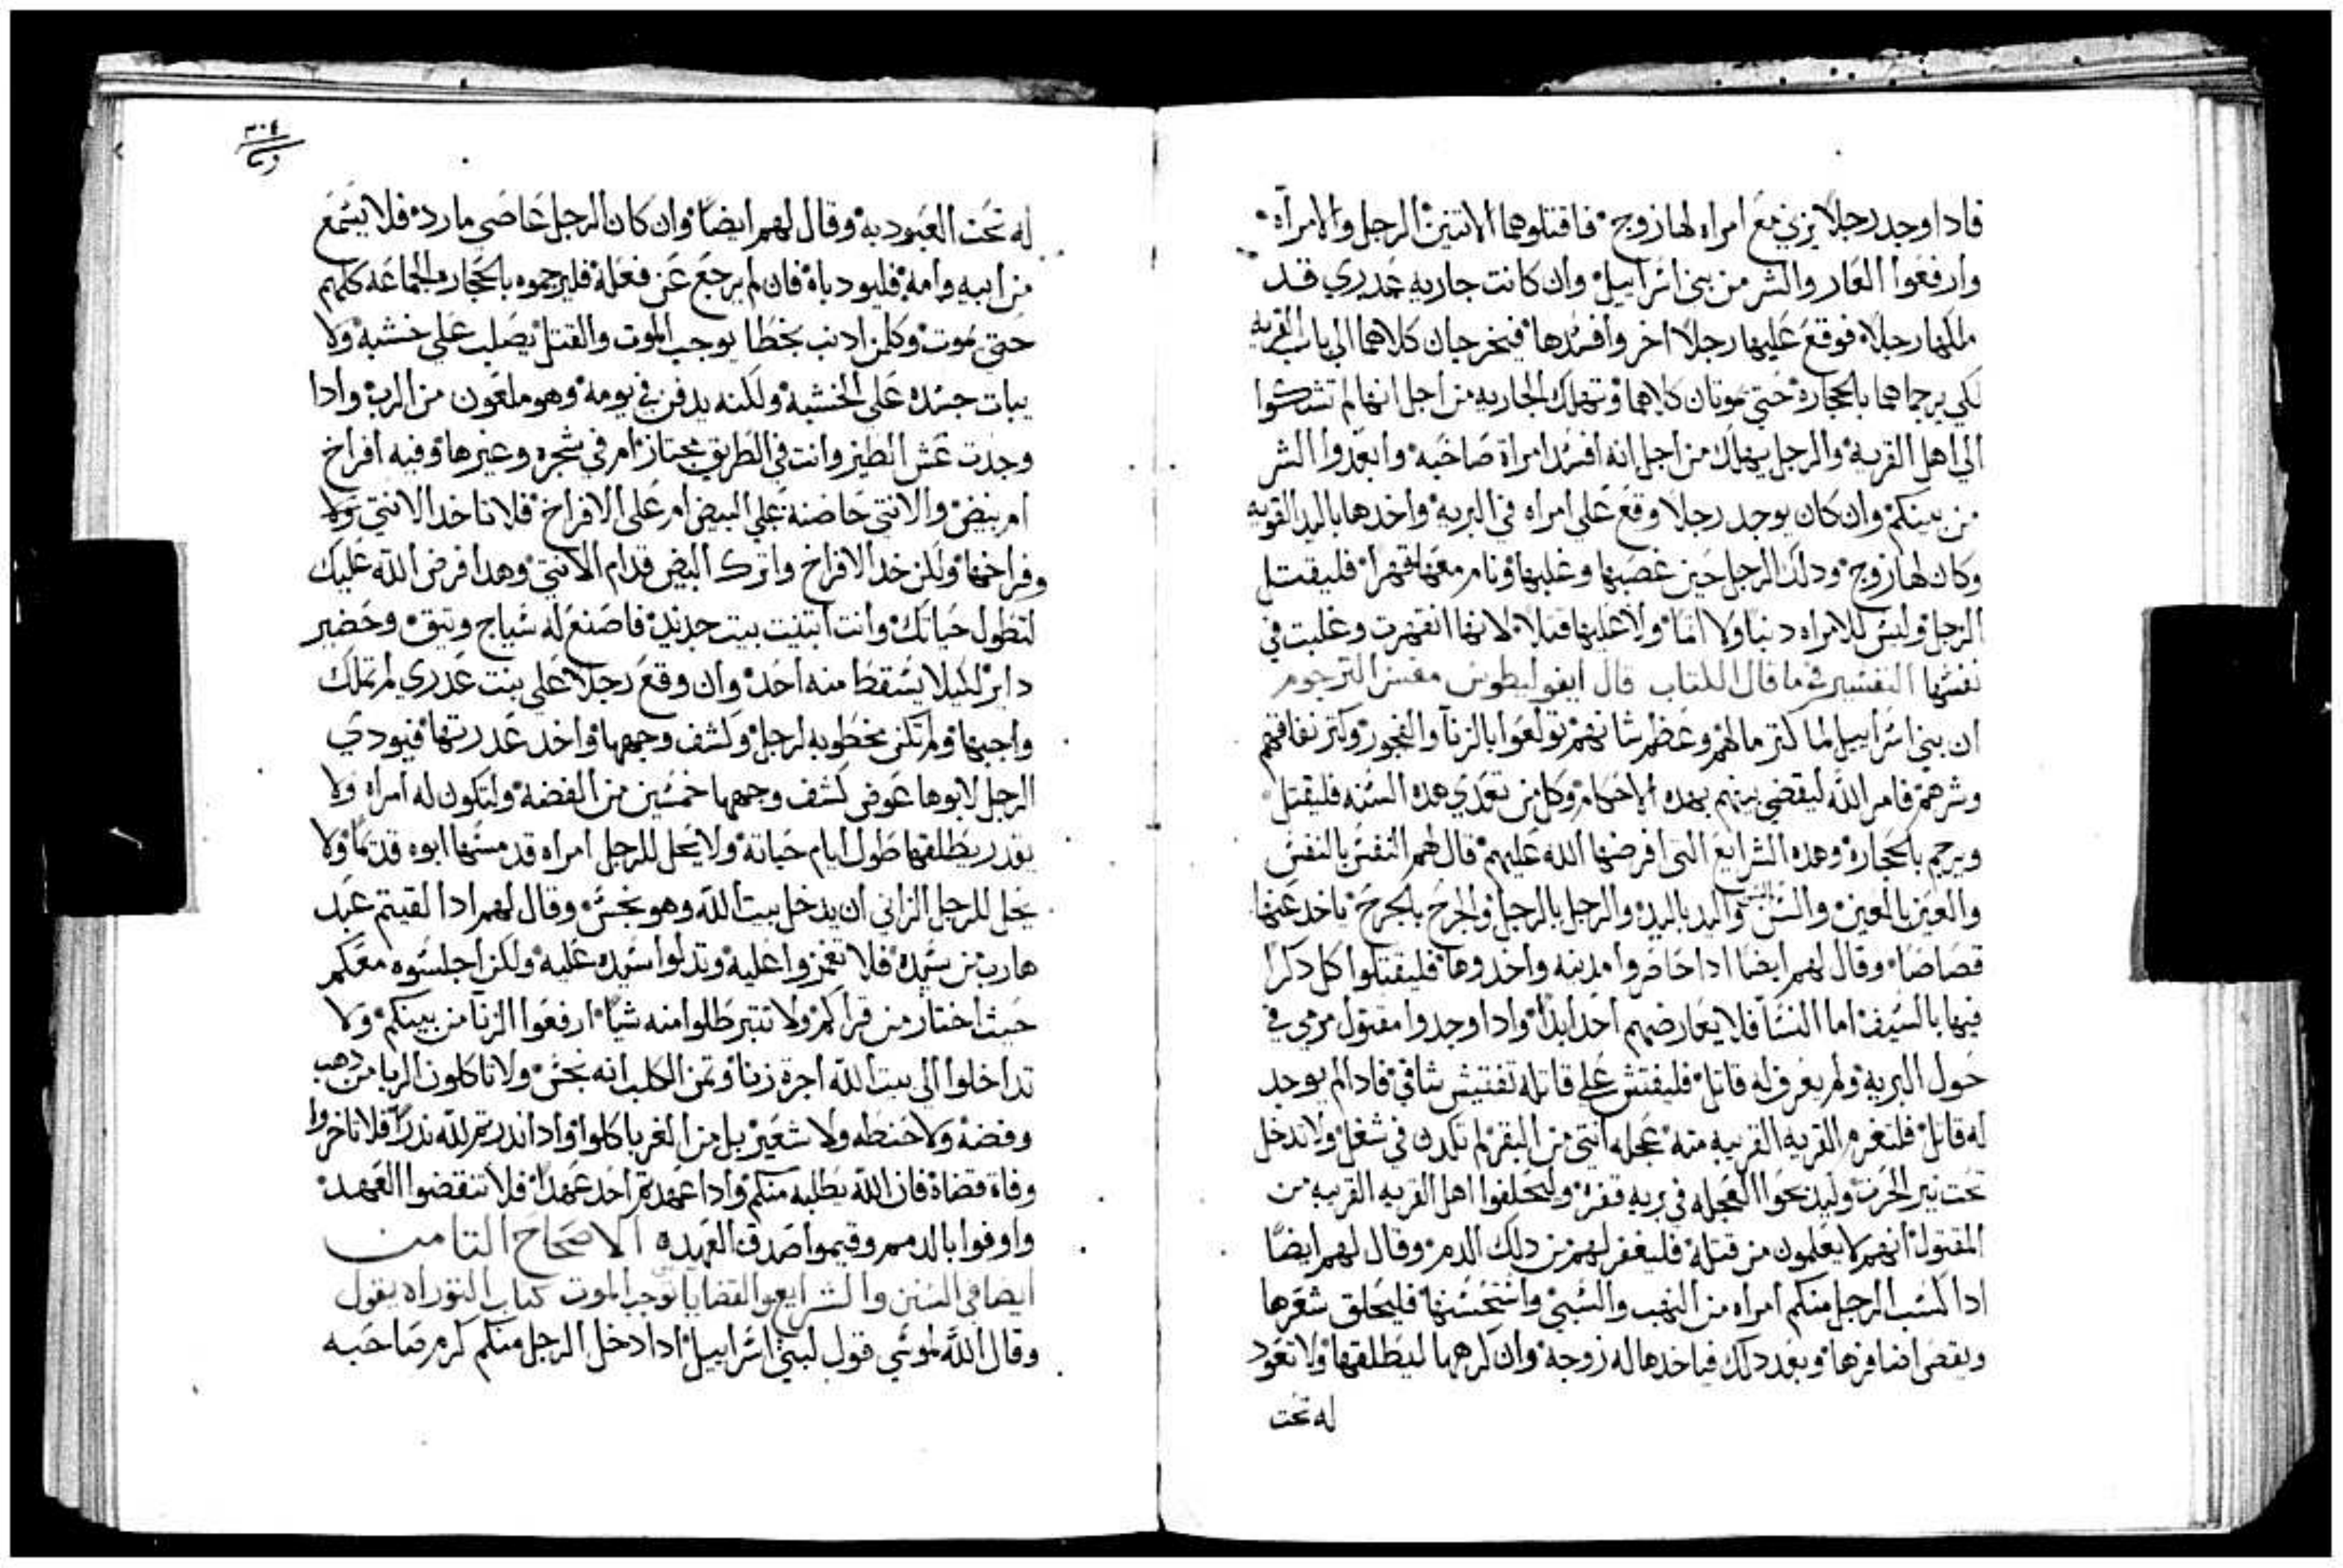 فادا وجد رجلاً يزني مع امراه لها زوج فاقتلوهما الاتنين الرجل والامراة
وارفعوا العار والشر من بني اسراييل وان كانت جاريه عدري قد
ملكها رجلاً فوقع عليها رجلاً اخر وافسدها فيخرجان كلاهما الي باب القريه
لكي يرجماهما بالحجارة حتي يموتان كلاهما وتهلك الجاريه من اجل انها لم تشكوا
الي اهل القرية والرجل يهلك من اجل انه افسد امراة صاحبه وابعدوا الشر
من بينكم وان كان يوجد رجلا وقع علي امراه في البرية واخدها باليد القويه
وكان لها زوج ودلك الرجل حين غصبها وغلبها ونام معها قهراً فليقتل
الرجل وليس للامراه دنبا ولا اثما ولا عليها قتلا لانها انقهرت وغلبت في
نفسها التفسير في ما قال الكتاب قال ايفوليطوس مفسر الترجوم
ان بني اسراييل لما كتر مالهم وعظم شانهم تولعوا بالزنا والفجور وكتر نفاقهم
وشرهم فامر الله ليقضي بينهم بهده الاحكام وكل من تعدي هده السنه فليقتل
ويرجم بالحجارة وهده الشرايع التي افرضها الله عليهم قال لهم النفس بالنفس
والعين بالعين والسن بالسن واليد باليد والرجل بالرجل والجرح بالجرح ياخد عنها
قصاصا وقال لهم ايضا ادا حاصروا مدينه واخدوها فليقتلوا كل دكرا
فيها بالسيف اما النسا فلا يعارضهم احد ابدا وادا وجدوا مقتول مرمي في
حول البرية ولم يعرف له قاتل فليفتش علي قاتله تفتيش شافي فادا لم يوجد
له قاتل فلتغرم القريه القريبه منه عجله انتي من البقر لم تكدن في شغل ولا تدخل
تحت نير الحرت وليدبحوا العجله في بريه قفره وليحلفوا اهل القريه القريبه من
المقتول انهم لا يعلمون من قتلة فليغفر لهم من دلك الدم وقال لهم ايضا
ادا كسب الرجل منكم امراه من النهب والسبي واستحسنها فليحلق شعرها
ويقص اضافرها وبعد دلك فياخدها له زوجه وان كرهها ليطلقها ولا تعود
له تحت
٣٠٤
له تحت العبوديه وقال لهم ايضا وان كان الرجل عاصي مارد فلا يسمع
من ابيه وامه فليودباه فان لم يرجع عن فعله فليرجموه بالحجاره الجماعه كلهم
حتي يموت وكلمن ادنب بخطا يوجب الموت والقتل يصلب علي خشبه ولا
يبات جسده علي الخشبه ولكنه يدفن في يومه وهو ملعون من الرب وادا
وجدت عش الطير وانت في الطريق مجتاز ام في شجره وغيرها وفيه افراخ
ام بيض والانتي حاضنه علي البيض ام علي الافراخ فلا تاخد الانتي ولا
وفراخها ولكن خد الافراخ واترك البيض قدام الانتي وهدا فرض الله عليك
لتطول حياتك وانت ابتنيت بيت جديد فاصنع له سياج وتيق وحضير
داير ليلا يسقط منه احد وان وقع رجلا علي بنت عدري لم تملك
واجبها ولم تكن مخطوبه لرجل وكشف وجهها واخد عدرتها فيودي
الرجل لابوها عوض كشف وجهها خمسين من الفضه ولتكون له امراه ولا
يقدر يطلقها طول ايام حياته ولا يحل للرجل امراه قد مسها ابوه قدتما ولا
يحل للرجل الزاني ان يدخل بيت الله وهو نجس وقال لهم ادا لقيتم عبد
هارب من سيده فلا تغمزوا عليه وتدلوا سيده عليه ولكن اجلسوه معكم
حيث اختار من قراكم ولا تتبرطلوا منه شيا ارفعوا الزنا من بينكم ولا
تداخلوا الي بيت الله اجرة زنا وتمن الكلب انه نجس ولا تاكلون الربا من دهب
وفضة ولا حنطه ولا شعير بل من الغربا كلوا وادا ندرتم لله ندرا فلا تاخروا
وفاة قضاة فان الله يطلبه منكم وادا عهدتم احد عهدا فلا تنقضوا العهد
واوفوا بالدمم وقيموا صدق العهده الاصحاح التامن
ايضا في السنن والشرايع والقضايا توجب الموت كتاب التوراه يقول
وقال الله لموسي قول لبني اسراييل ادا دخل الرجل منكم كرم صاحبه